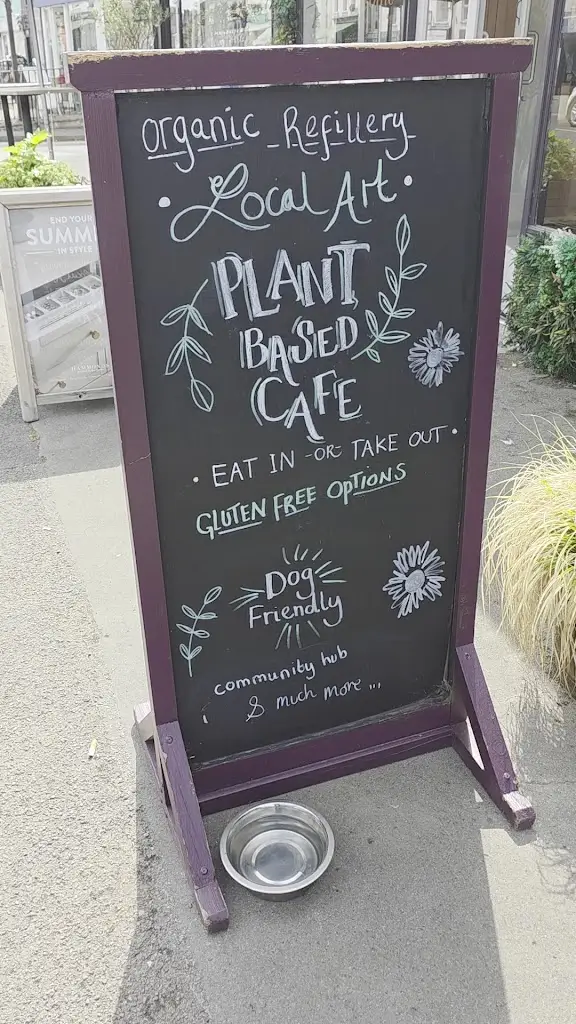 organic Refillery
• Local Art •
PLANT
BASED
CAFE
• EAT IN -OR- TAKE OUT •
GLUTEN FREE OPTIONS
Dog
Friendly
community hub
& much more ...
END YOUR
SUMM
IN STYLE